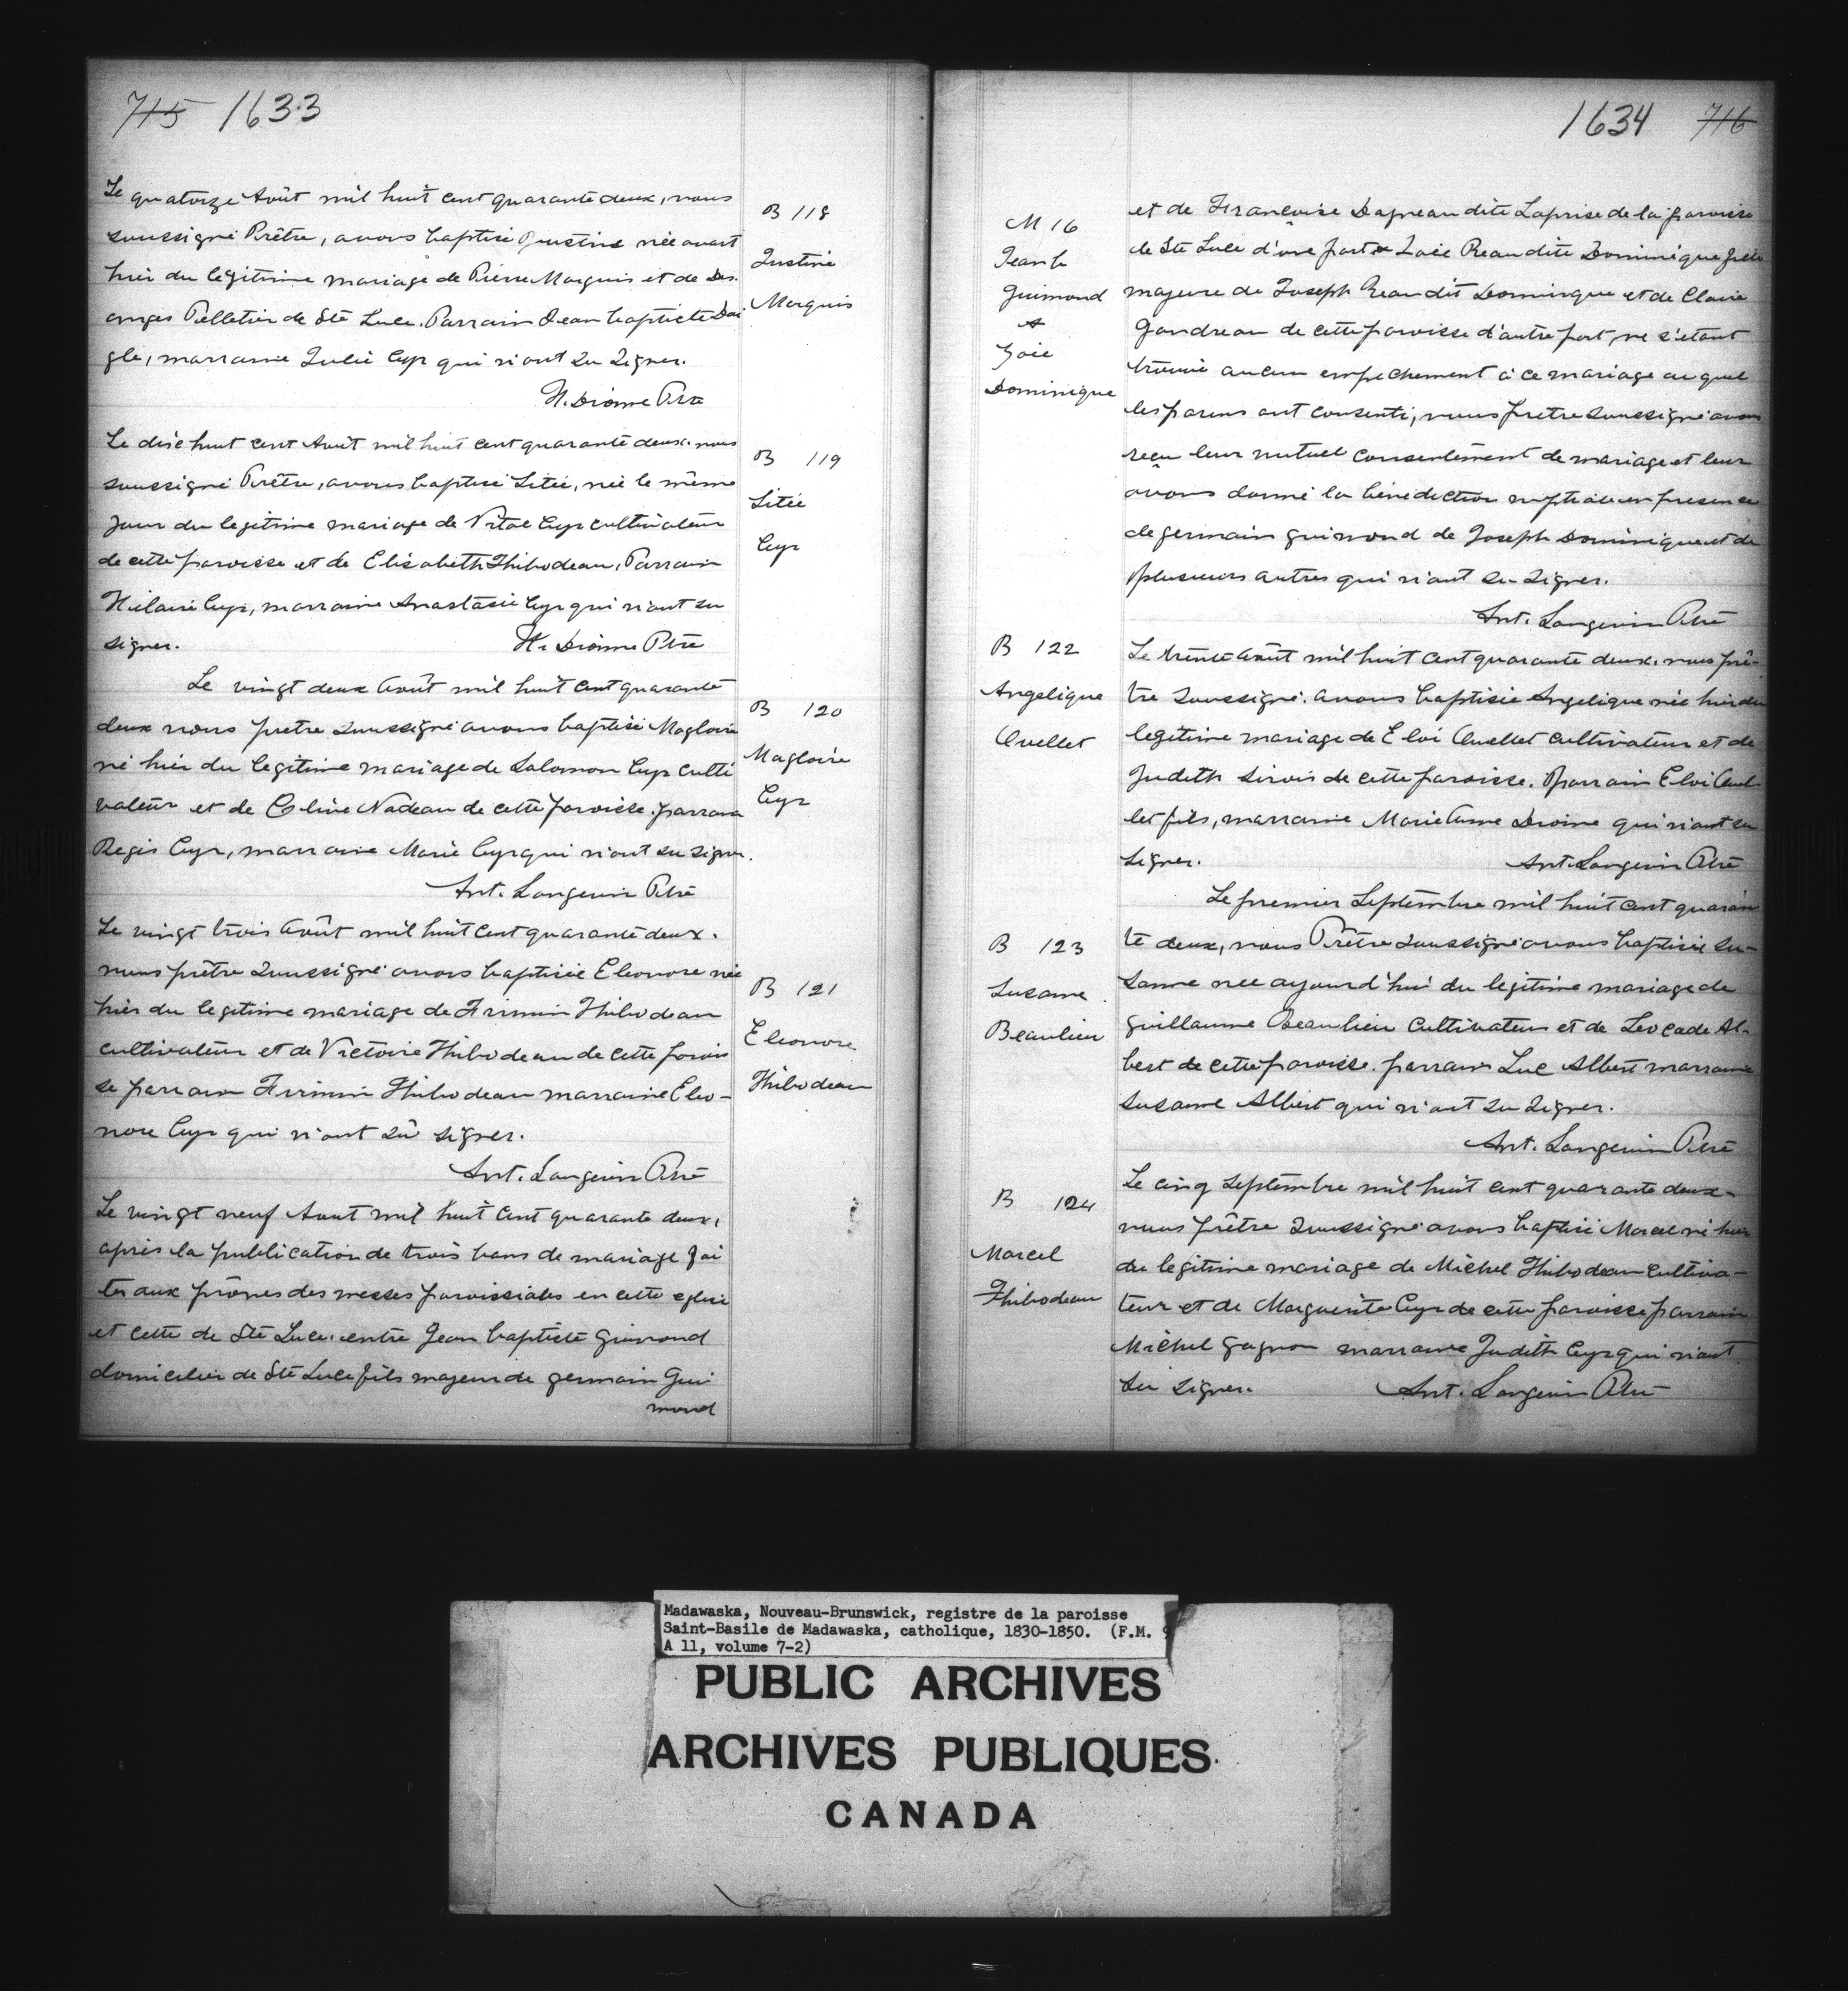 715 1633
Le quatorze Août mil huit cent quarante deux, nous
soussigné Prêtre, avons baptisé Justine née avant
hier du légitime mariage de Pierre Marquis et de Des
anges Pelletier de Ste Luce. Parrain Jean baptiste Dai
gle, marraine Julie Cyr qui n'ont su signer.
H. Dionne Ptre
B 118
Justine
Marquis
Le dix huit cent Août mil huit cent quarante deux. nous
soussigné Prêtre, avons baptisé Litée, née le même
jour du legitime mariage de Vital Cyr cultivateur
de cette paroisse et de Elisabeth Thibodeau, Parrain
Hilaire Cyr, marraine Anastasie Cyr qui n'ont su
signer. H. Dionne Ptre
B 119
Litée
Cyr
Le vingt deux Août mil huit cent quarante
deux nous pretre soussigné avons baptisé Magloire
né hier du legitime mariage de Salomon Cyr culti
vateur et de Nadeau de cette paroisse. parrain
Regis Cyr, marraine Marie Cyr qui n'ont su signer.
Ant. Langevin Ptre
B 120
Magloire
Cyr
Le vingt trois Août mil huit cent quarante deux.
nous prêtre soussigné avons baptisée Eleonore née
hier du legitime mariage de Firmin Thibodeau
cultivateur et de Victoire Thibodeau de cette parois
se parrain Firmin Thibodeau marraine Eleo-
nore Cyr qui n'ont sû signer.
Ant. Langevin Ptre
B 121
Eleonore
Thibodeau
Le vingt neuf Aout mil huit cent quarante deux,
après la publication de trois bans de mariage fai
tes aux prônes des messes paroissiales en cette eglise
et cette de Ste Luce. entre Jean baptiste Guimond
domicilier de Ste Luce fils majeur de germain Gui
mond
1634 716
M 16
Jean b
Guimond
&
Zoie
Dominique
et de Françoise Dagneau dite Laprise de la paroisse
de Ste Luce d'une part & Zoie Reau dite Dominique fille
majeure de Joseph Reau dit Dominique et de Claire
Gaudreau de cette paroisse d'autre part, ne s'etant
trouvé aucun empechement à ce mariage au quel
les parens ont consenti, nous pretre soussigné avons
reçu leur mutuel consentement de mariage et leur
avons donné la bénédiction nuptiale en presence
de germain guimond de Joseph Dominique et de
plusieurs autres qui n'ont su signer.
Ant. Langevin Ptre
B 122
Angelique
Ouellet
Le trente Août mil huit cent quarante deux. nous prê-
tre soussigné. avons baptisée Angelique née hier du
legitime mariage de Eloi Ouellet cultivateur et de
Judith Sirois de cette paroisse. parrain Eloi Ouel
let fils, marraine Marie Anne qui n'ont su
signer. Ant. Langevin Ptre
Le premier Septembre mil huit cent quaran
te deux, nous Prêtre soussigné avons baptisée Su-
sanne née aujourd'hui du legitime mariage de
Guillaume Beaulieu cultivateur et de Leocade Al-
bert de cette paroisse. parrain Luc Albert marraine
Susanne Albert qui n'ont su signer.
Ant. Langevin Ptre
B 123
Susanne
Beaulieu
B 124
Marcel
Thibodeau
Le cinq septembre mil huit cent quarante deux.
nous prêtre soussigné avons baptisé Marcel né hier
du legitime mariage de Michel Thibodeau cultiva-
teur et de Marguerite Cyr de cette paroisse parrain
Michel Gagnon marraine Judith Cyr qui n'ont
su signer. Ant. Langevin Ptre
Madawaska, Nouveau-Brunswick, registre de la paroisse
Saint-Basile de Madawaska, catholique, 1830-1850. (F.M. 9
A 11, volume 7-2)
PUBLIC ARCHIVES
ARCHIVES PUBLIQUES
CANADA